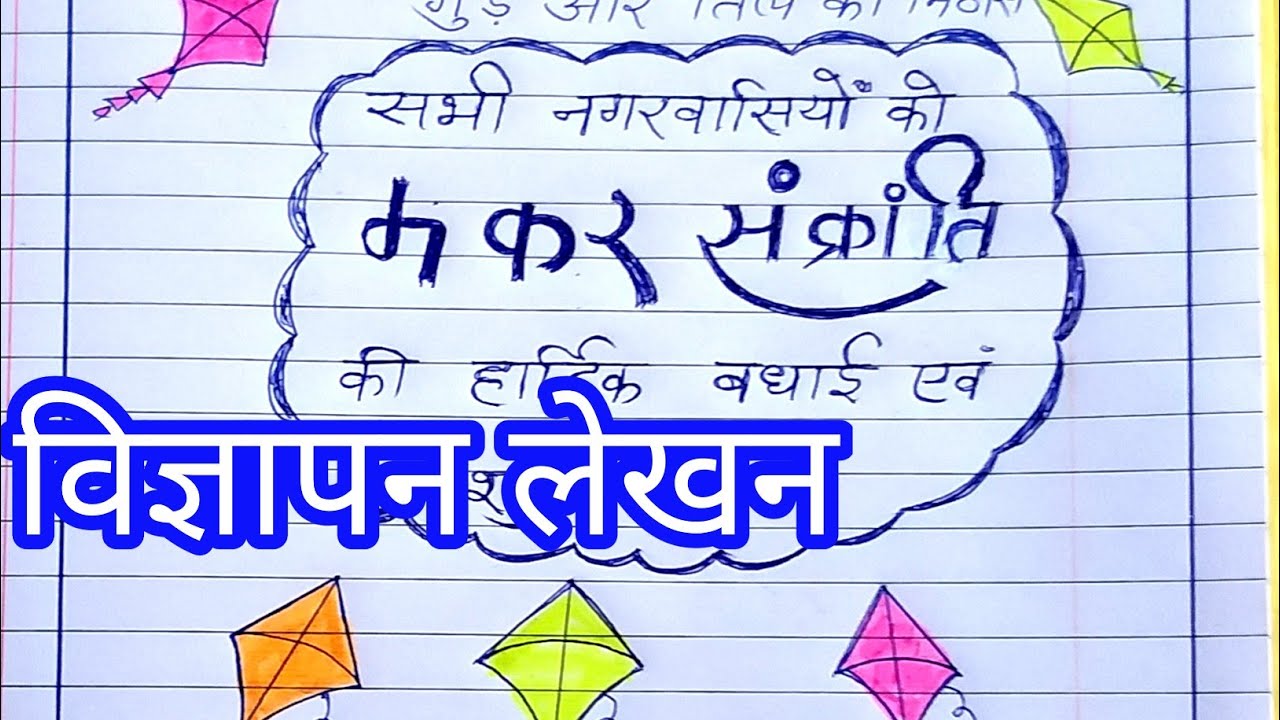 गुड़ और तिल की मिठास
सभी नगरवासियों को
मकर संक्रांति
की हार्दिक बधाई एवं
विज्ञापन लेखन